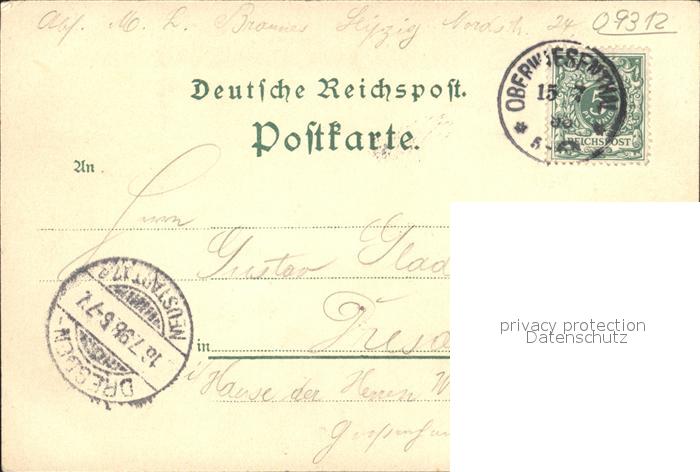 Abs. M. L. Brannes Leipzig Nordstr. 24. 09312
Deutsche Reichspost.
Postkarte.
OBERWIESENTHAL
15 7
98
5-
5
PFENNIG
REICHSPOST
An
Herrn
Gustav Glad
Dresd
in
i/Hause der Herren W
Grossenhain
DRESDEN
NEUSTADT
16.7.98.
privacy protection
Datenschutz